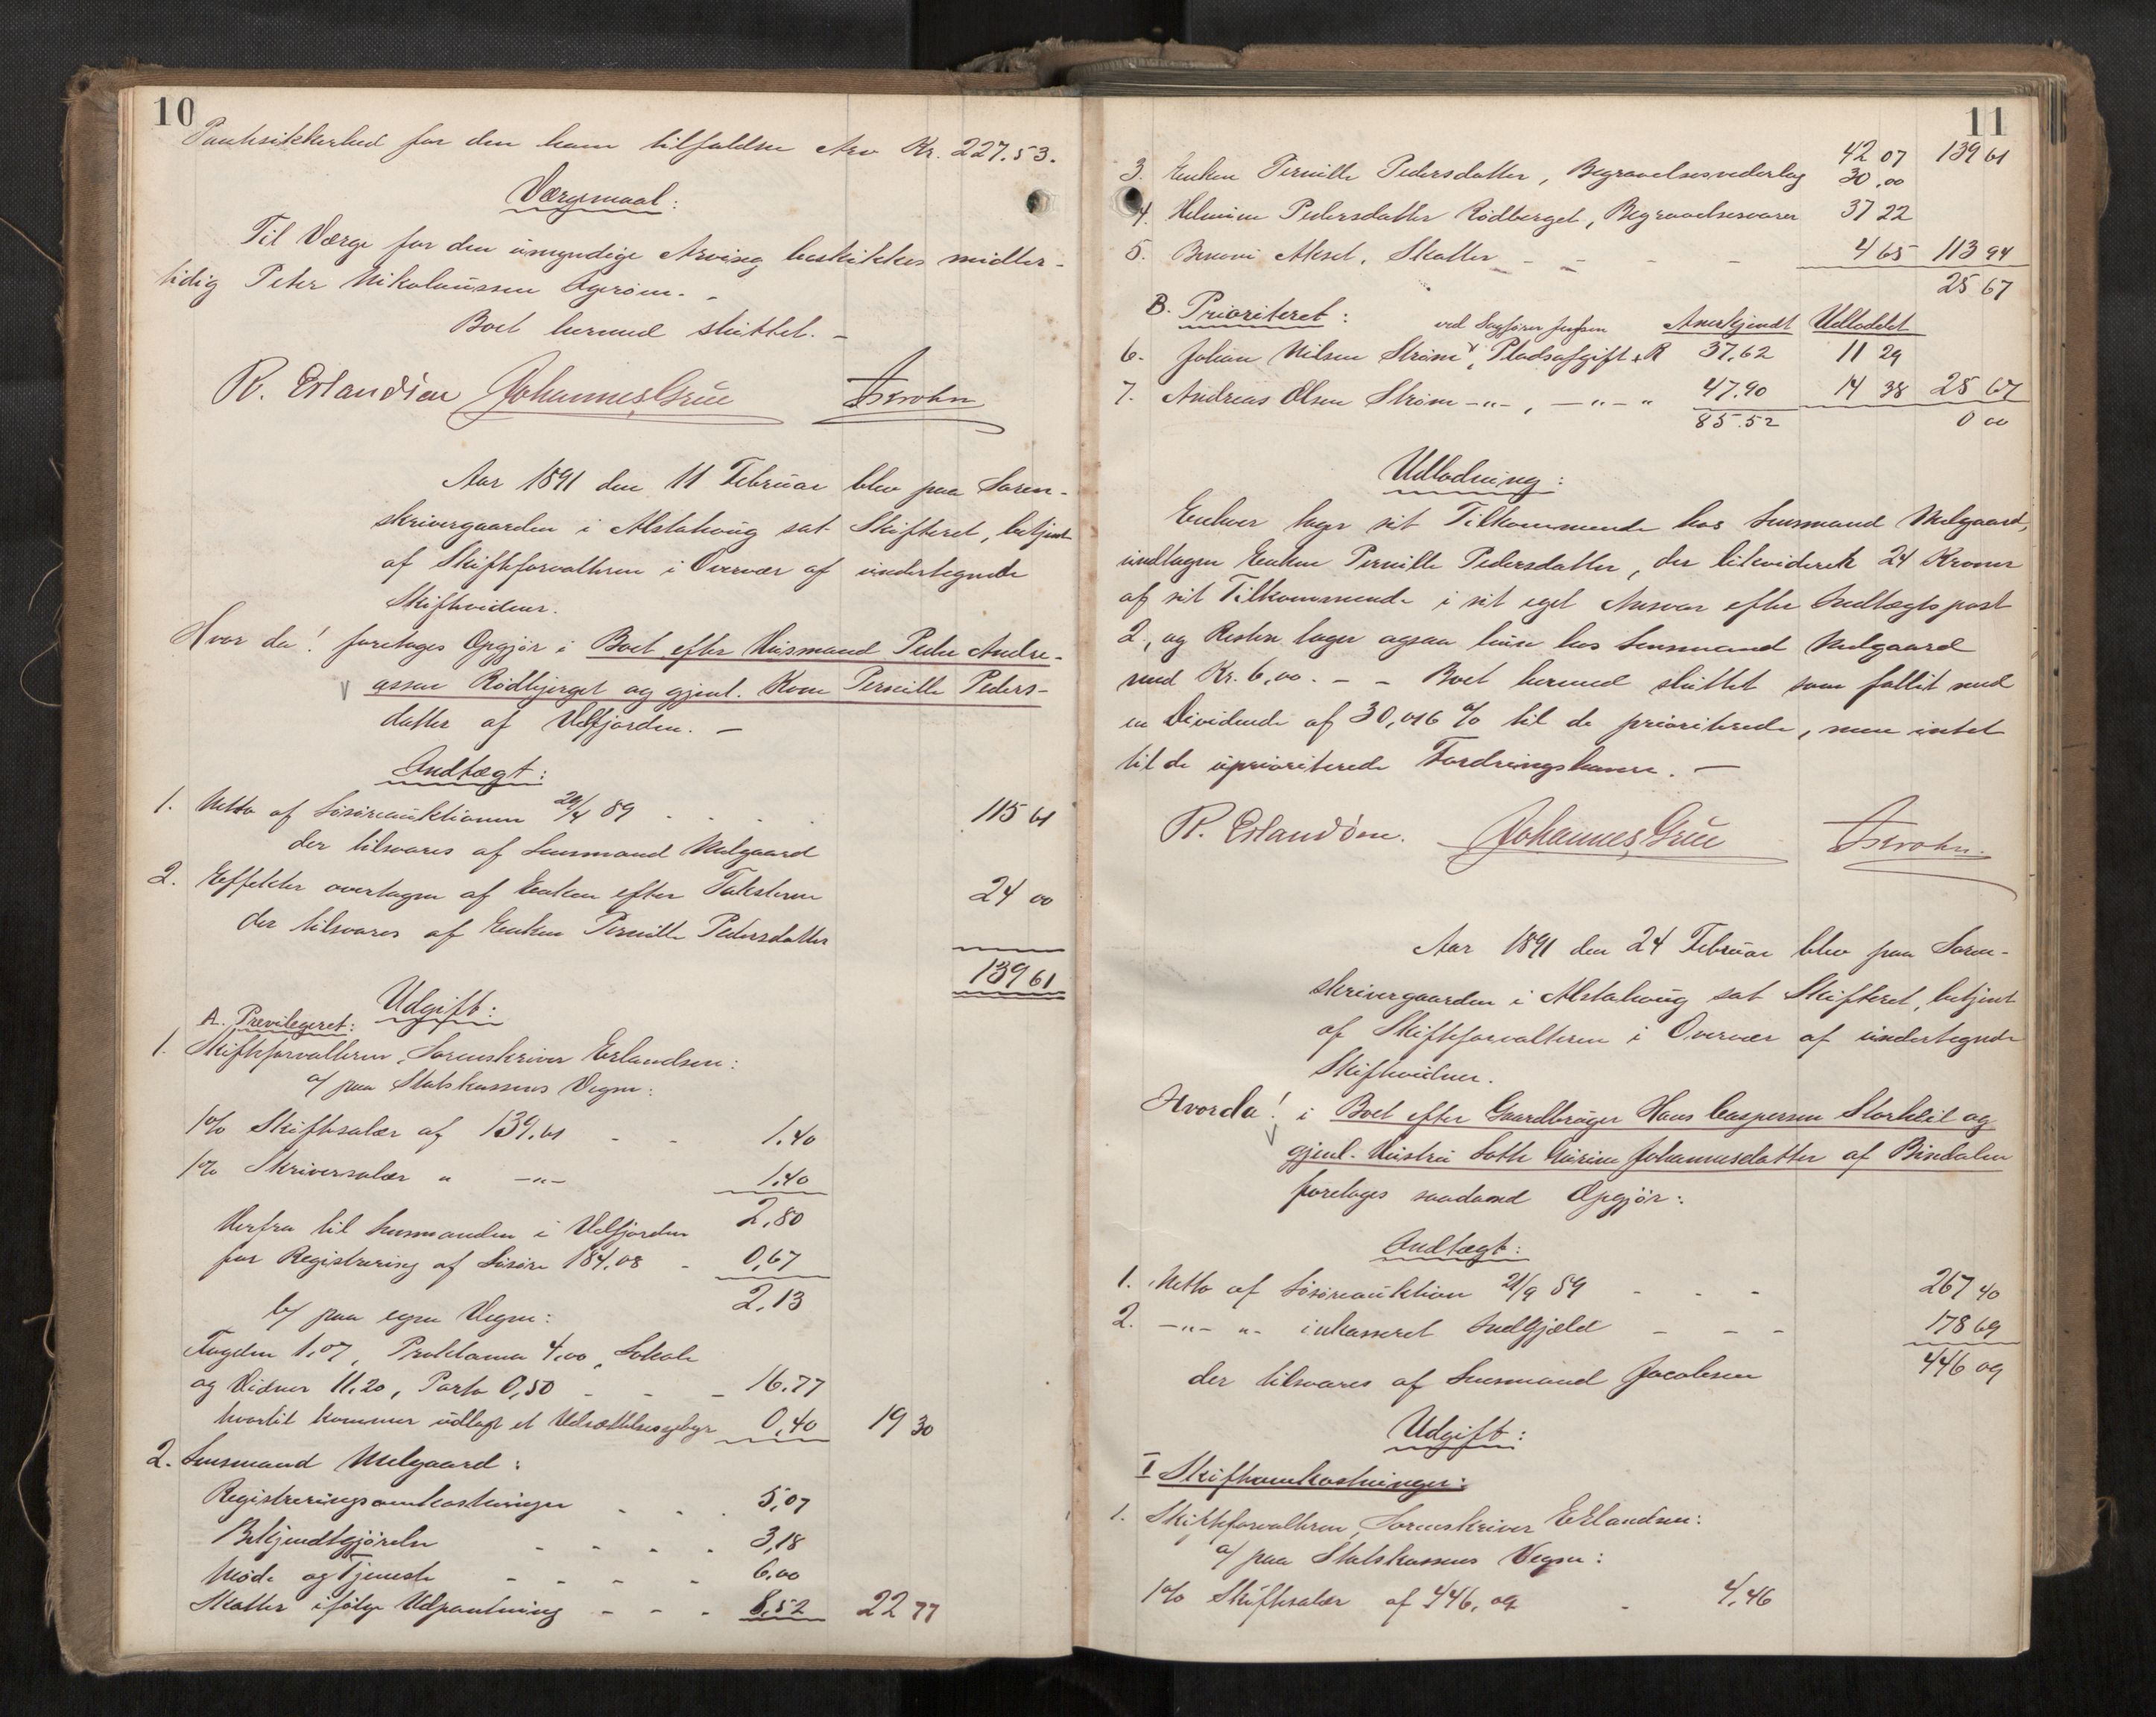 10
Pantsikkerhed for den ham tilfaldne Arv Kr. 227.53.
Værgemaal:
Til Værge for den umyndige Arving beskikkes midler-
tidig Peter Nikolaussen
Boet hermed sluttet. –
R. Erlandsen Johannes Grue
Aar 1891 den 11 Februar blev paa Soren-
skrivergaarden i Alstahoug sat Skifteret, betjent
af Skifteforvalteren i Overvær af undertegnede
Skiftevidner.
Hvor da! foretages Opgjør i Boet efter Husmand Peder Andre-
assen Rödbjerget og gjenl. Kone Pernille Peders-
datter af Velfjorden. –
Indtægt:
1. Netto af Løsøreauktionen 29/4 89 . . . . 115 61
der tilsvares af Lensmand Melgaard
2. Effekter overtagen af Enken efter Taksteren 24 00
der tilsvares af Enken Pernille Pedersdatter
139 61
Udgift:
A. Previlegeret:
1. Skifteforvalteren, Sorenskriver Erlandsen:
a/ paa Statskassens Vegne:
1% Skiftesalær af 139.61 - - 1.40
1% Skriversalær " -"- 1.40
2,80
Herfra til Lensmanden i Velfjorden
for Registrering af Løsøre 184.08 - 0,67
2,13
b/ paa egne Vegne:
1.07, Proklama 4,00, Lokale
og Vidner 11.20, Porto 0,50 - - - 16.77
hvortil kommer udlagt et Udsættelsesgebyr 0,40 19 30
2. Lensmand Melgaard:
Registreringsomkostninger . . . 5,07
Bekjendtgjørelse - - - . 3,18
Møde og Tjeneste - - - - 6.00
Skatter ifølge Udpantning - - . 8,52 22 77
11
42 07 139 61
3. Enken Pernille Pedersdatter, Begravelsesvederlag 30.00
4. Helmine Pedersdatter Rödberget, Begravelsesvarer 37 22
5. Aksel, Skatter - - - - 4 65 113 94
25 67
B. Prioriteret: ved Sagfører Jensen Anerkjendt Udloddet
6. Johan Nilsen Strøm, Pladsafgift, R 37,62 11 29
7. Andreas Olsen Strøm -"-, -"- " 47.90 14 38 25 67
85.52 0 00
Udlodning:
Enhver tager sit Tilkommende hos Lensmand Melgaard,
undtagen Enken Pernille Pedersdatter, der likviderer 24 Kroner
af sit Tilkommende i sit eget Ansvar efter Indtægtspost
2, og Resten tager ogsaa hun hos Lensmand Melgaard
med Kr. 6,00. - - Boet hermed sluttet som fallit med
en Dividende af 30,016 % til de prioriterede, men intet
til de uprioriterede Fordringshavere. –
R. Erlandsen. Johannes Grue
Aar 1891 den 24 Februar blev paa Soren-
skrivergaarden i Alstahoug sat Skifteret, betjent
af Skifteforvalteren i Overvær af undertegnede
Skiftevidner.
Hvorda! i Boet efter Gaardbruger Hans Caspersen Storklit og
gjenl. Hustru Johannesdatter af Bindalen
foretages saadand Opgjör:
Indtægt:
1. Netto af Løsøreauktion 21/9 89 - - - 267 40
2. -"- "- inkasseret Indgjæld - - - 178 69
446 09
der tilsvares af Lensmand Jacobsen
Udgift:
I Skifteomkostninger:
1. Skifteforvalteren, Sorenskriver Erlandsen:
a/ paa Statskassens Vegne:
1% Skiftesalær af 446,09 - 4,46